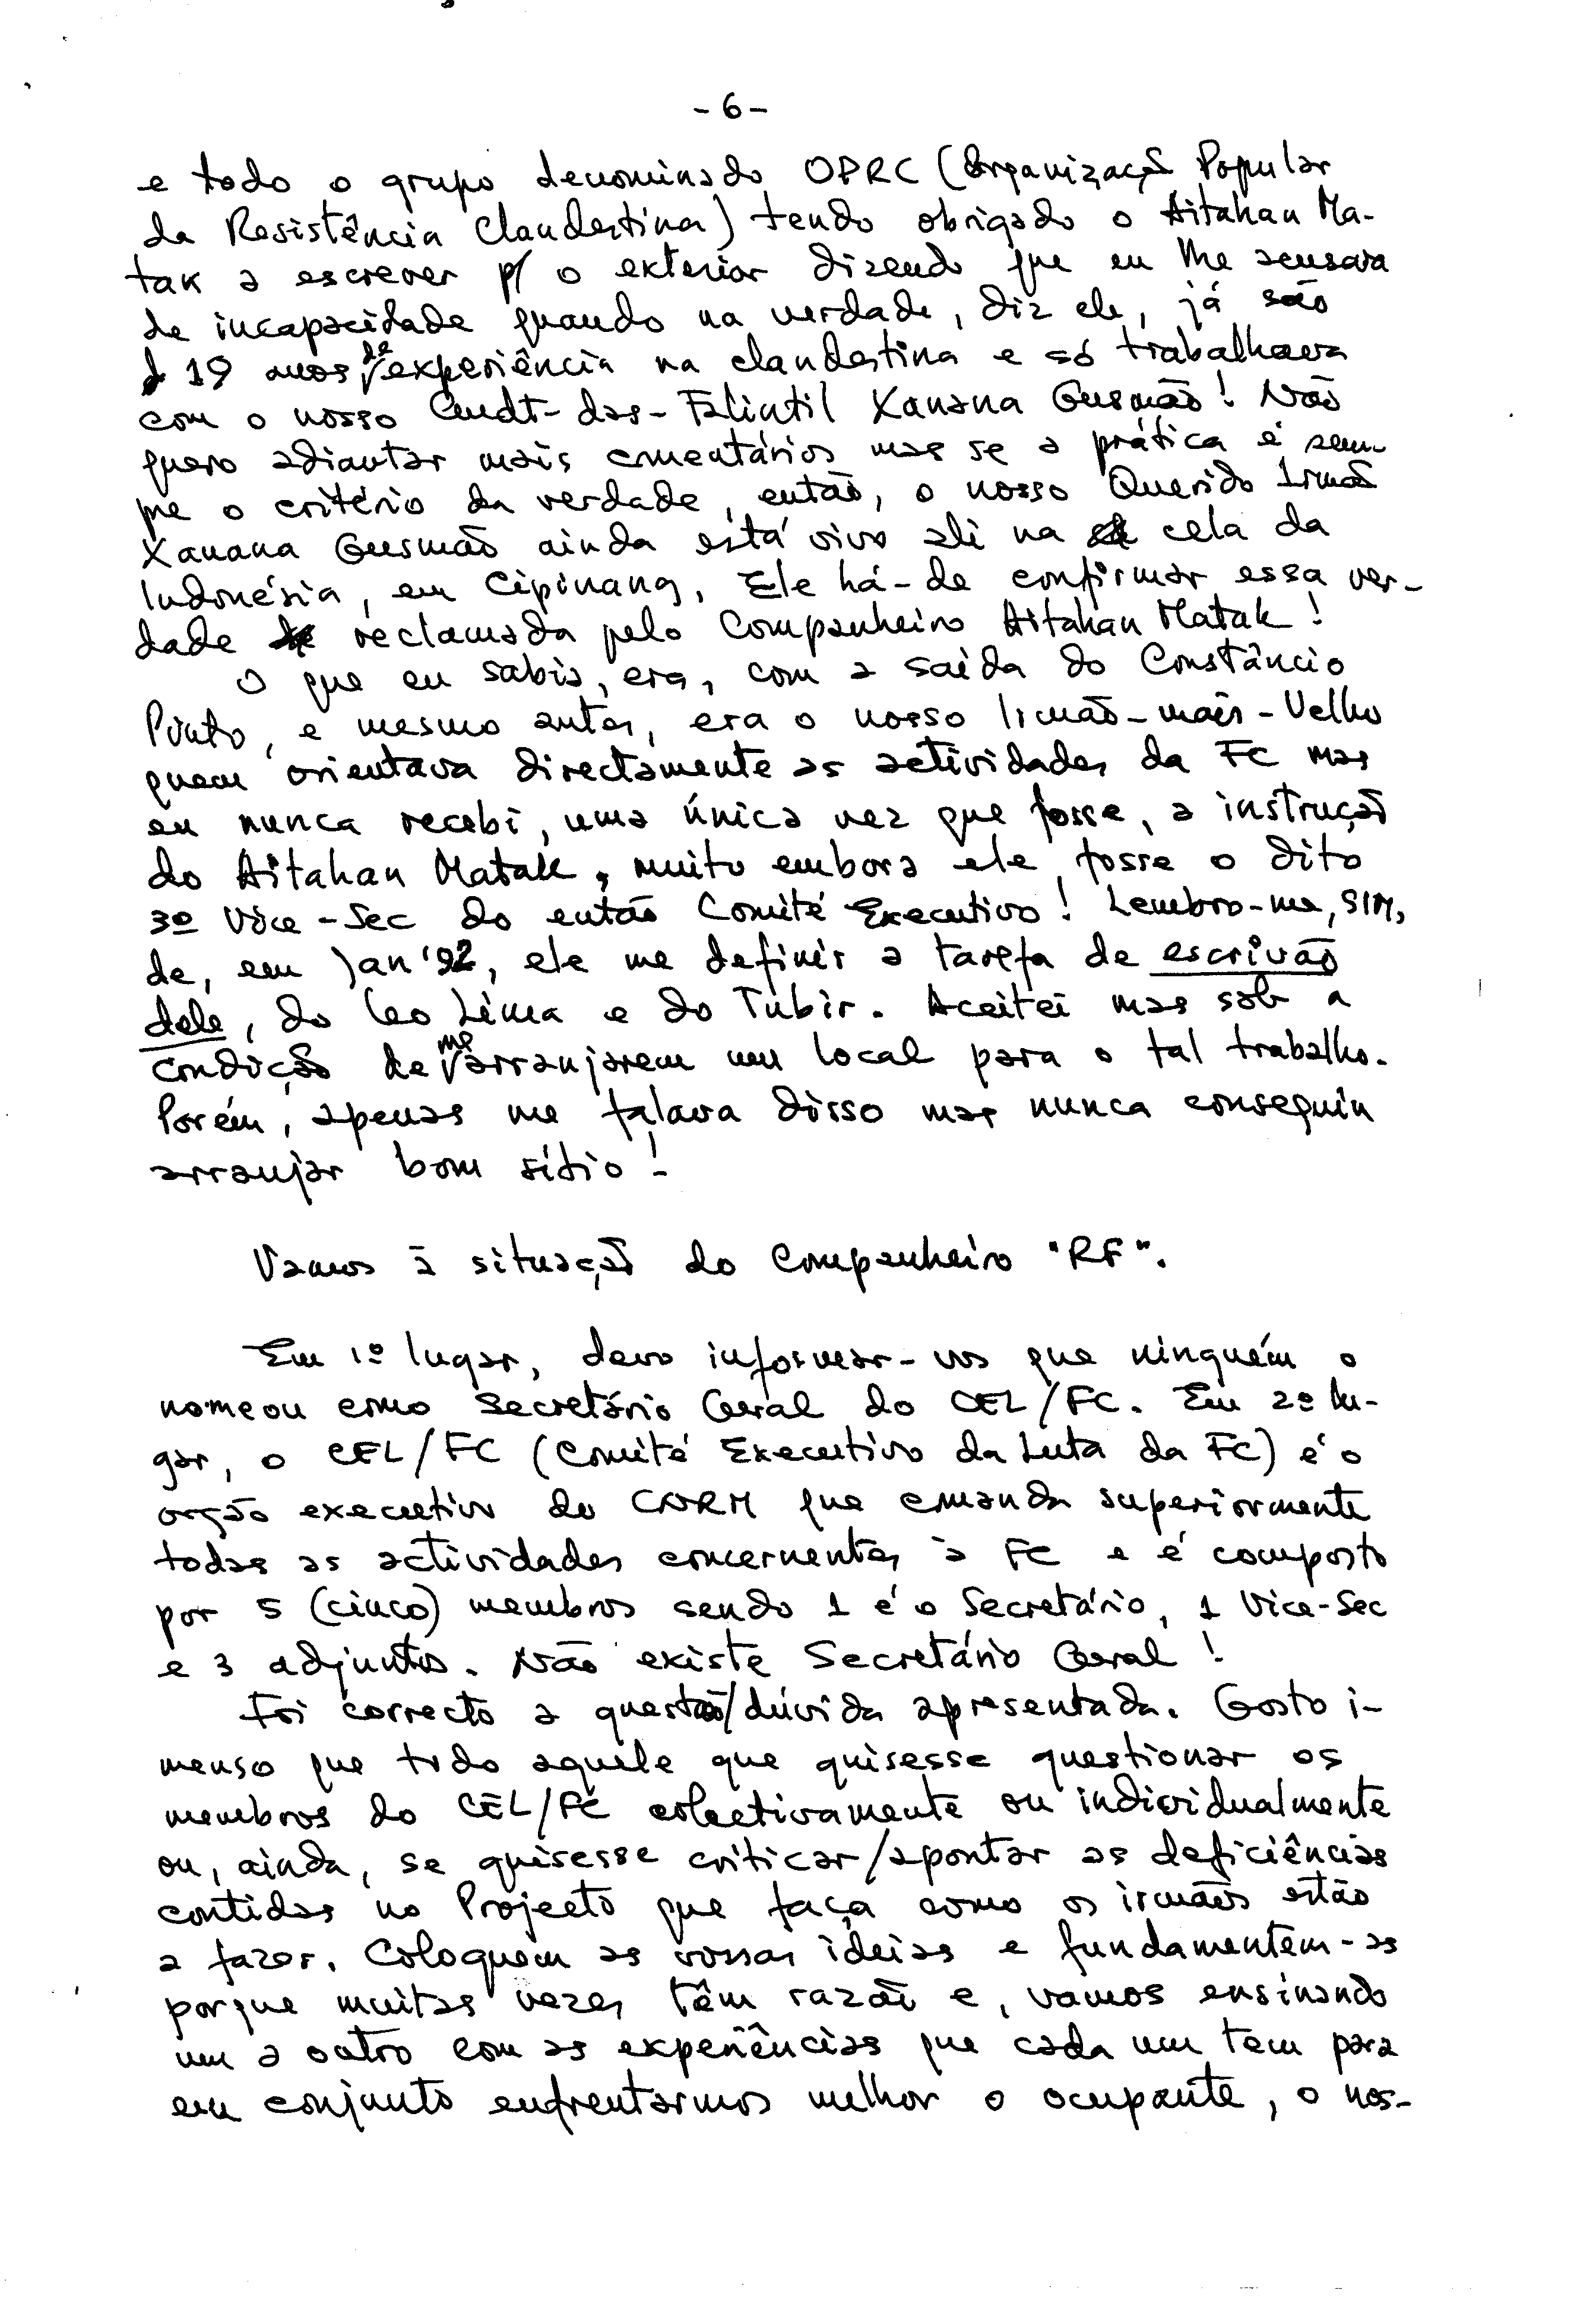 - 6 -
e todo o grupo denominado OPRC (Organização Popular
da Resistência Clandestina) tendo obrigado o Aitahan Ma-
tak a escrever p/ o exterior dizendo que eu lhe acusara
de incapacidade quando na verdade, diz ele, já são
19 anos de experiência na clandestina e só trabalhava
com o nosso Cmdt-das-Falintil Xanana Gusmão! Não
quero adiantar mais comentários mas se a prática é sem-
pre o critério da verdade, então, o nosso Querido Irmão
Xanana Gusmão ainda está vivo ali na cela da
Indonésia, em Cipinang, Ele há-de confirmar essa ver-
dade reclamada pelo Companheiro Aitahan Matak!
O que eu sabia, era, com a saída do Constâncio
Pinto, e mesmo antes, era o nosso Irmão-mais-Velho
quem orientava directamente as actividades da FC mas
eu nunca recebi, uma única vez que fosse, a instrução
do Aitahan Matak, muito embora ele fosse o dito
3º Vice-Sec do então Comité Executivo! Lembro-me, SIM,
de, em Jan'92, ele me definir a tarefa de escrivão
dele, do Leo Lima e do Tubir. Aceitei mas sob a
condição de me arranjarem um local para o tal trabalho.
Porém, apenas me falava disso mas nunca conseguiu
arranjar bom sítio!
Vamos à situação do Companheiro "RF".
Em 1º lugar, devo informar-vos que ninguém o
nomeou como Secretário Geral do CEL/FC. Em 2º lu-
gar, o CEL/FC (Comité Executivo da Luta da FC) é o
orgão executivo do CNRM que comanda superiormente
todas as actividades concernentes à FC e é composto
por 5 (cinco) membros sendo 1 é o Secretário, 1 Vice-Sec
e 3 adjuntos. Não existe Secretário Geral!
Foi correcto a questão/dúvida apresentada. Gosto i-
menso que todo aquele que quisesse questionar os
membros do CEL/FC colectivamente ou individualmente
ou, ainda, se quisesse criticar/apontar as deficiências
contidas no Projecto que faça como os irmãos estão
a fazer. Coloquem as vossas ideias e fundamentem-as
porque muitas vezes têm razão e, vamos ensinando
um a outro com as experiências que cada um tem para
em conjunto enfrentarmos melhor o ocupante, o nos-